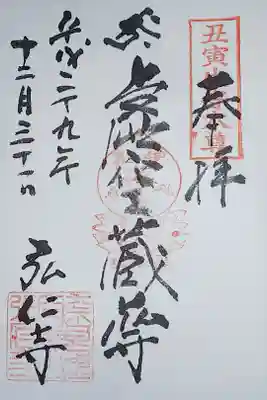 丑寅生守本尊
奉拝
虚空蔵尊
平成二十九年
十二月三十一日
弘仁寺